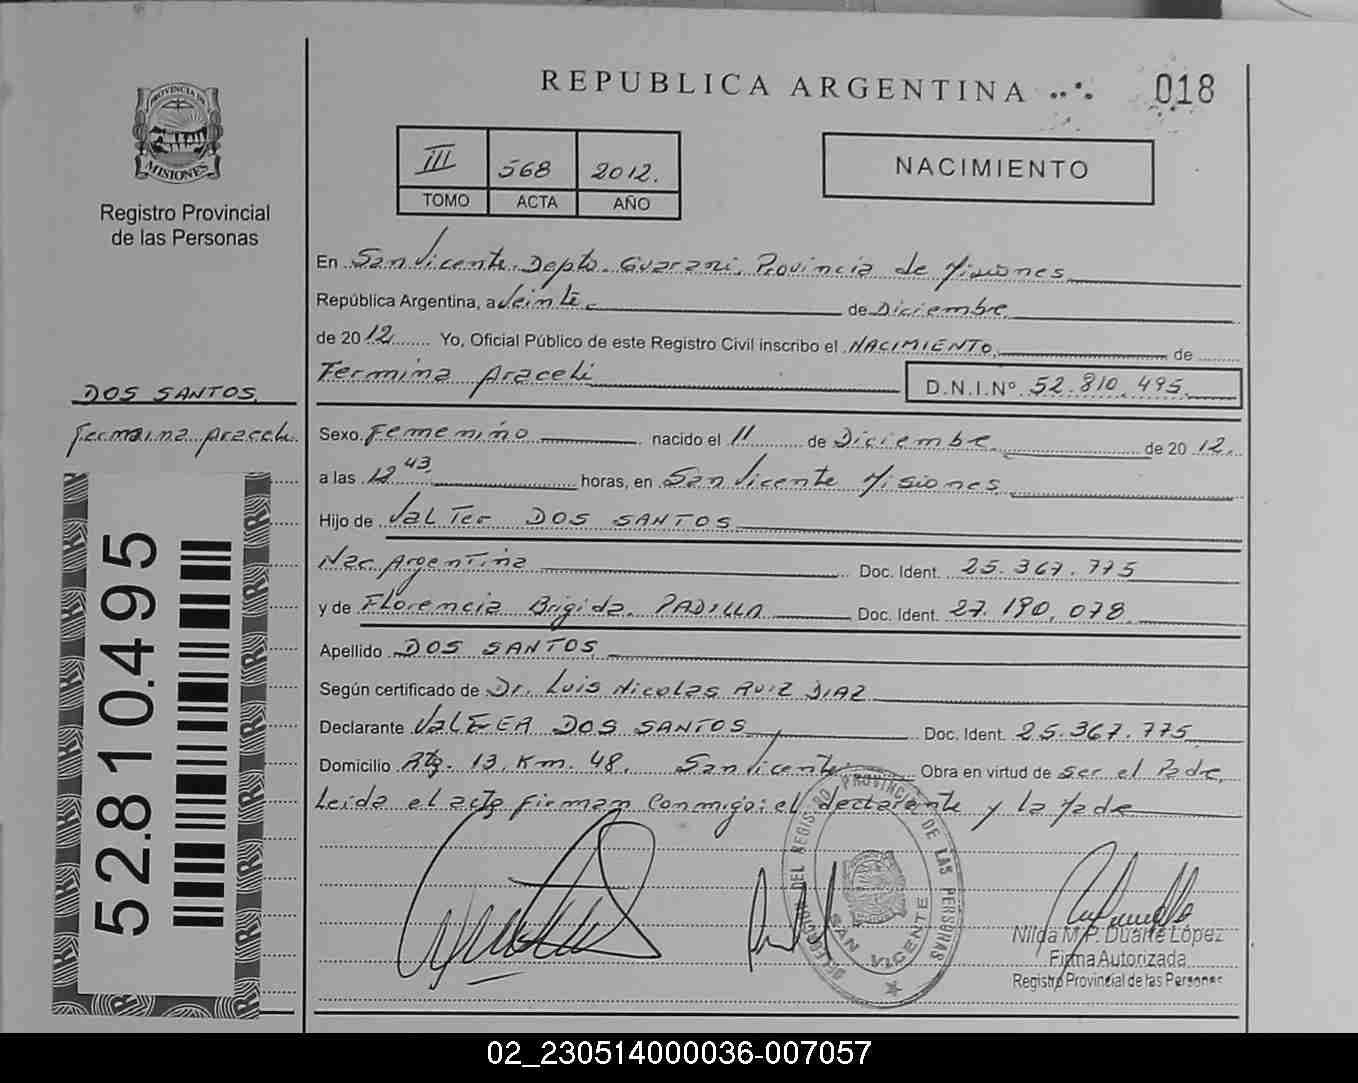 REPUBLICA ARGENTINA
018
PROVINCIA DE
MISIONES
Registro Provincial
de las Personas
III 568 2012.
TOMO ACTA AÑO
NACIMIENTO
En San Vicente. Depto. Guarani. Provincia de Misiones
República Argentina, a Veinte de Diciembre
de 2012 Yo, Oficial Público de este Registro Civil inscribo el NACIMIENTO de
Fermina Araceli D.N.I.Nº 52.810.495
DOS SANTOS
Fermina Araceli
Sexo Femenino nacido el 11 de Diciembre de 2012.
a las 12 43 horas, en San Vicente Misiones
Hijo de Valter DOS SANTOS
Nac. Argentina Doc. Ident. 25.367.775
y de Florencia Brigida PADILLA Doc. Ident. 27.190.078
Apellido DOS SANTOS
Según certificado de Dr. Luis Nicolas RUIZ DIAZ
Declarante DOS SANTOS Doc. Ident. 25.367.775
Domicilio 13. Km. 48. San Vicente Obra en virtud de ser el Padre,
Leida el acta firman conmigo: el declarante y la Madre
52.810.495
DELEGACION DEL REGISTRO PROVINCIAL DE LAS PERSONAS
SAN VICENTE
Nilda M.P. Duarte López
Firma Autorizada
Registro Provincial de las Personas
02_230514000036-007057